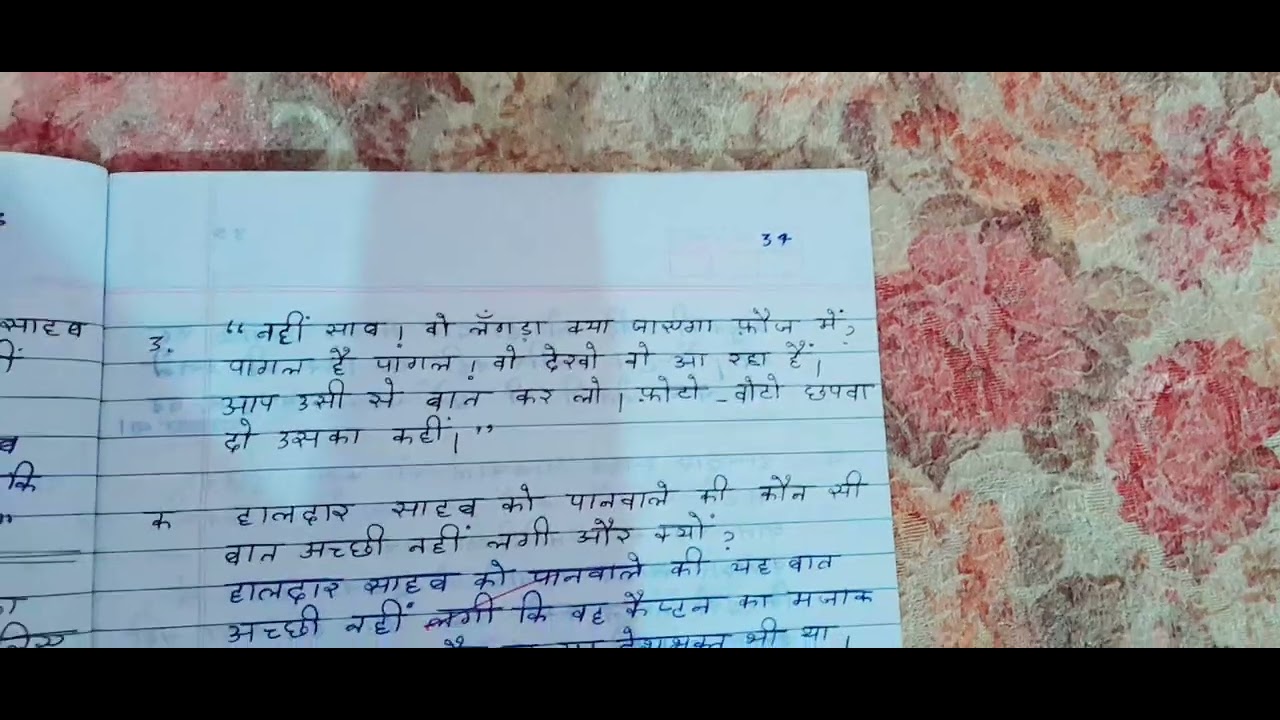 34
साहब
3. “नहीं साब! वो लँगड़ा क्या जाएगा फ़ौज में?
पागल है पागल! वो देखो वो आ रहा है।
आप उसी से बात कर लो। फ़ोटो-वोटो छपवा
दो उसका कहीं।”
कि
क हालदार साहब को पानवाले की कौन सी
बात अच्छी नहीं लगी और क्यों?
हालदार साहब को पानवाले की यह बात
अच्छी नहीं लगी कि वह कैप्टन का मजाक
देशभक्त भी था।